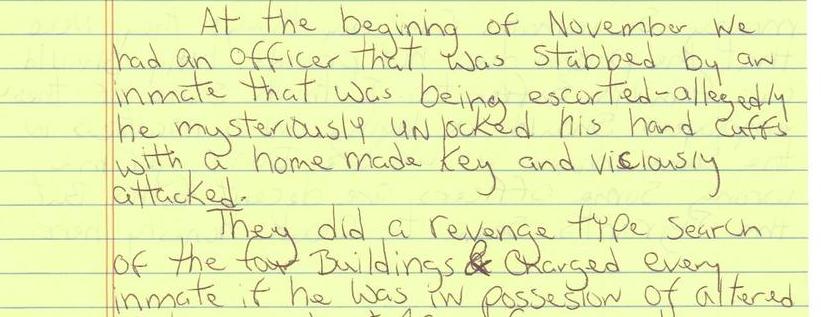 At the begining of November We
had an officer that was Stabbed by an
inmate that was being escorted-allegedly
he mysteriously unlocked his hand cuffs
with a home made Key and viciously
attacked.
They did a revenge type Search
of the four Buildings & Charged every
inmate if he was in possesion of altered